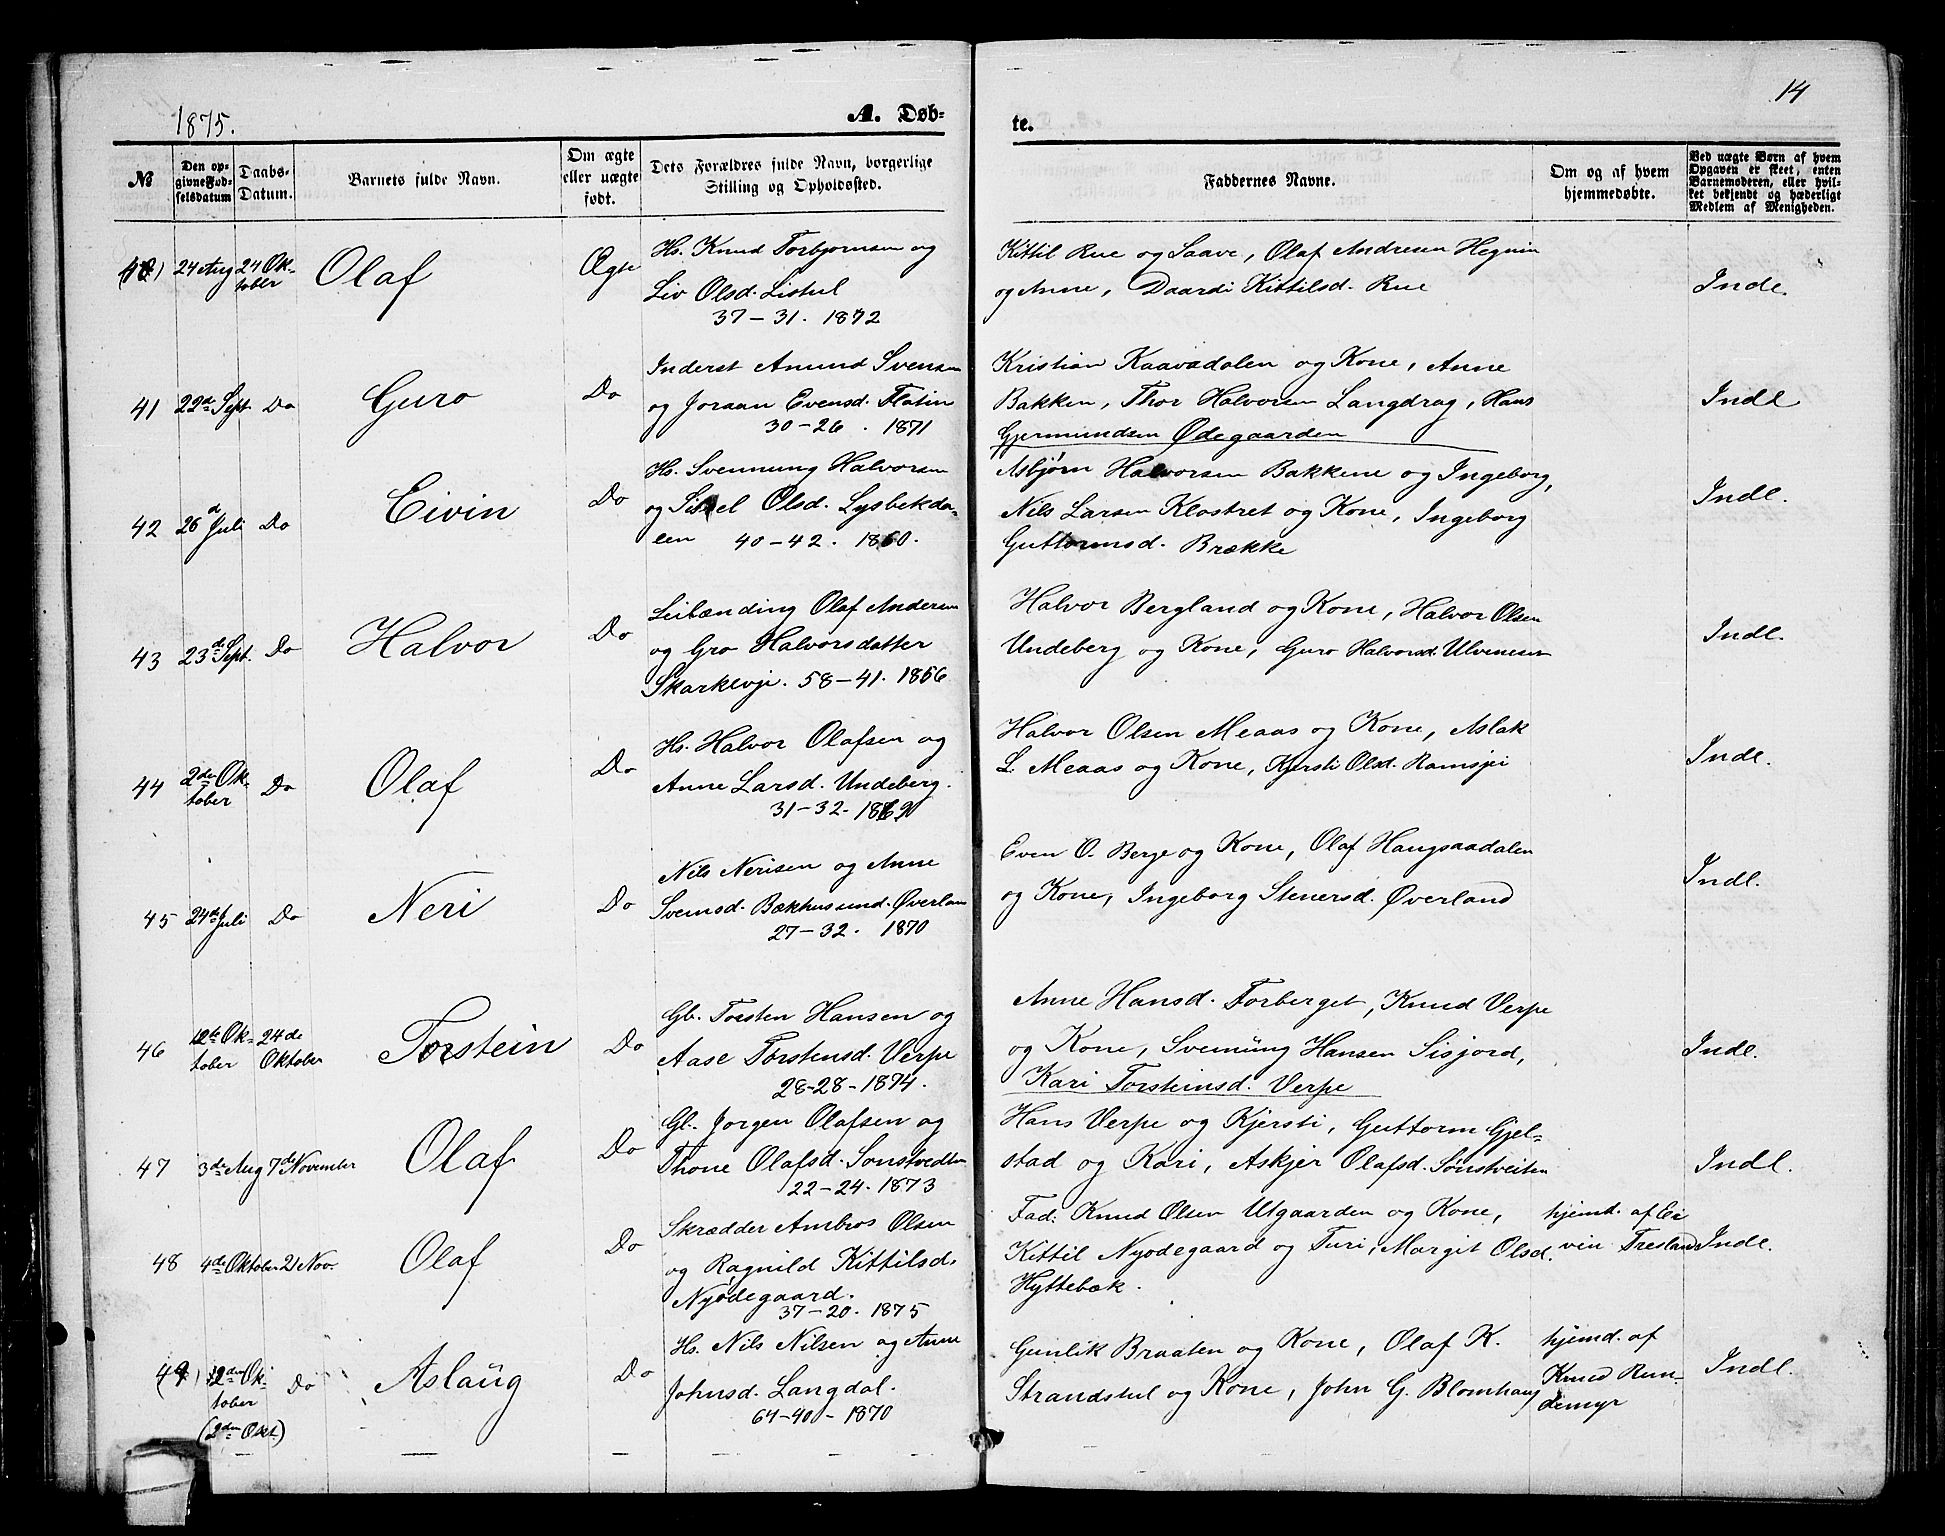 14
1875. A. Døb- te.
№
Den op-
givne Fød-
selsdatum
Daabs-
Datum.
Barnets fulde Navn.
Om ægte
eller uægte
født.
Dets Forældres fulde Navn, borgerlige
Stilling og Opholdssted.
Faddernes Navne.
Om og af hvem
hjemmedøbte.
Ved uægte Børn af hvem
Opgaven er skeet, enten
Barnemoderen, eller hvil-
ket bekjendt og hæderligt
Medlem af Menigheden.
40) 24 Aug 24 Ok-
tober
Olaf
Ægte
Hs. Knud Torbjornsen og
Liv Olsd. Listul
37-31. 1872
Kittil Rue og Saave, Olaf Andresen Hegnin
og Anne, Daardi Kittilsd. Rue
Indl.
41 22d Sept. Do
Guro
Do
Inderst Amund Svensen
og Joraan Evensd. Flatin
30-26. 1871
Kristian Kaavadalen og Kone, Anne
Bakken, Thor Halvorsen Langdrag, Hans
Gjermundsen Ødegaarden
Indl
42 26d Juli Do
Eivin
Do
Hs. Svennung Halvorsen
og Sissel Olsd. Lysbekda-
len 40-42. 1860.
Asbjørn Halvorsen Bakkene og Ingeborg,
Nils Larsen Klostret og Kone, Ingeborg
Guttormsd. Brække
Indl.
43 23d Sept. Do
Halvor
Do
Leilænding Olaf Andersen
og Gro Halvorsdatter
Skarkevje. 58-41. 1856
Halvor Bergland og Kone, Halvor Olsen
Undeberg og Kone, Guro Halvorsd. Ulvenesen
Indl.
44 2de Ok-
tober
Do
Olaf
Do
Hs. Halvor Olafsen og
Anne Larsd. Undeberg.
31-32. 1869
Halvor Olsen Meaas og Kone, Aslak
L. Meaas og Kone, Kjersti Olsd. Ramsjei
Indl.
45 24de Juli Do
Neri
Do
Nils Nerisen og Anne
Svensd. Bækhus und. Øverland
27-32. 1870
Even O. Berge og Kone, Olaf Haugsaadalen
og Kone, Ingeborg Stenersd. Øverland
Indl.
46 12te Ok-
tober
24de
Oktober
Torstein
Do
Gb. Torsten Hansen og
Aase Torstensd. Verpe
28-28-1874.
Anne Hansd. Forberget, Knud Verpe
og Kone, Svenüng Hansen Sisjord,
Kari Torsteinsd. Verpe
Indl.
47 3de Aug 7de November
Olaf
Do
Gl. Jorgen Olafsen og
Thone Olafsd. Sonstvedten
22-24. 1873
Hans Verpe og Kjersti, Guttorm Gjel-
stad og Kari, Askjer Olafsd. Sønstveiten
Indl.
48 4de Oktober 21 Nov.
Olaf
Do
Skrædder Ambros Olsen
og Ragnild Kittilsd.
Nyødegaard.
37-20. 1875
Fad: Knud Olsen Utgaarden og Kone,
Kittil Nyødegaard og Turi, Margit Olsd.
Hyttebæk.
hjemd. af Ei
vin Tresland
Indl.
49) 12den Ok-
tober
(2den Okt.)
Do
Aslaüg
Do
Hs. Nils Nilsen og Anne
Johnsd. Langdal.
64-40-1870
Gunlik Braaten og Kone, Olaf K.
Strandstul og Kone, John G. Blomhaug
hjemd. af
Knud Run-
demyr
Indl.